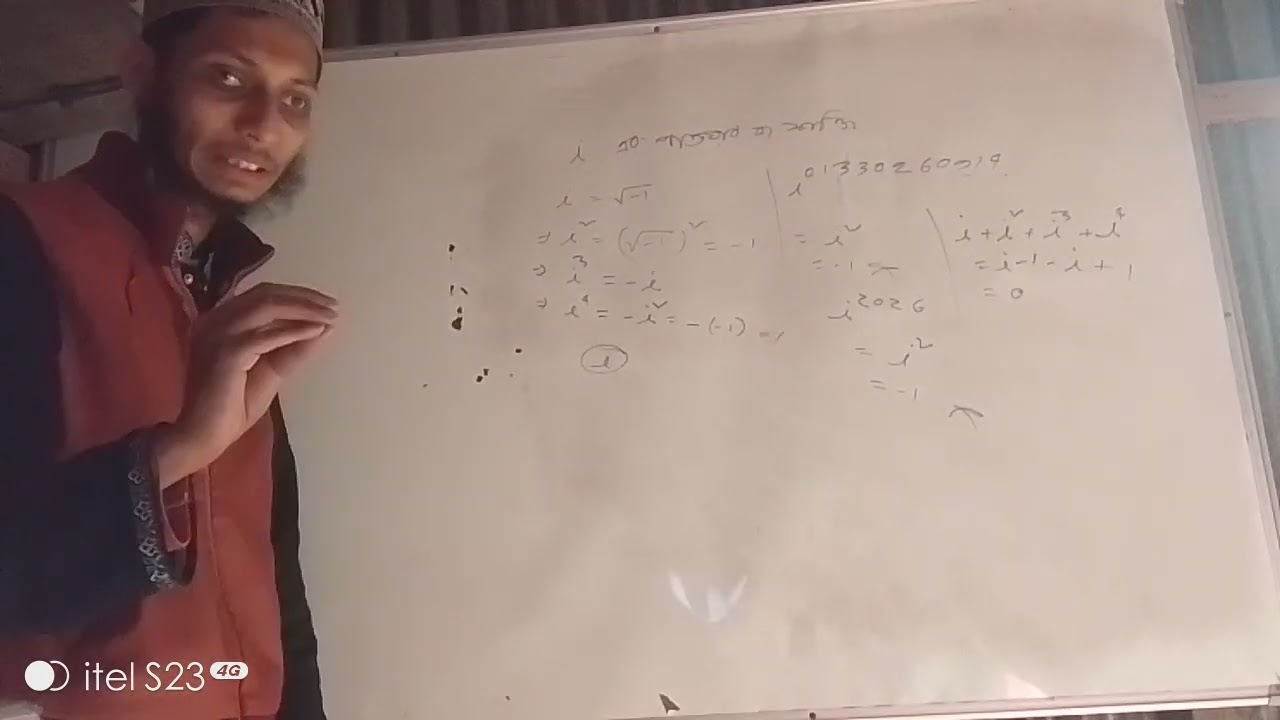 i এর
i = √-1
⇒ i² = (√-1)² = -1
⇒ i³ = -i
⇒ i⁴ = -i² = -(-1) = 1
i
i⁰¹³³⁰²⁶⁰⁰¹⁴
= i²
= -1
i²⁰²⁶
= i²
= -1
i + i² + i³ + i⁴
= i - 1 - i + 1
= 0
itel S23 4G